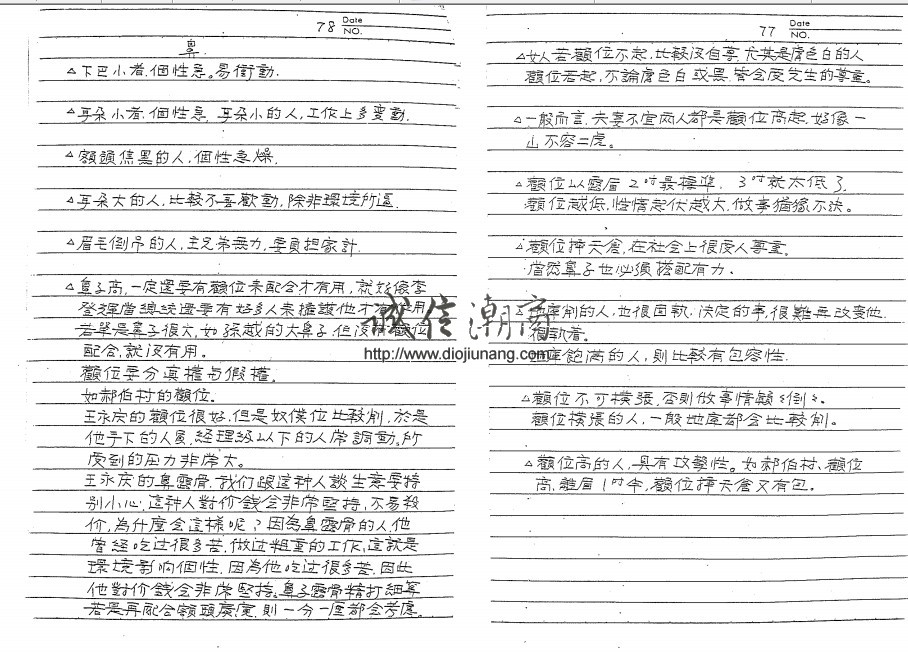 78 Date NO.
鼻
△下巴小者.個性急。易衝動.
△耳朵小者.個性急.耳朵小的人,工作上多变動.
△額頭焦黑的人,個性急燥.
△耳朵大的人,比較不喜歡動,除非環境所逼.
△眉毛倒吊的人,主兄弟無力,要負担家計.
△鼻子高,一定還要有顴位來配合才有用,就好像李
登輝當總統還要有好多人來擁護他才有作用
若單是鼻子很大,如孫越的大鼻子但沒有顴位
配合,就沒有用。
顴位要分真權与假權.
如郝伯村的顴位。
王永庆的顴位很好.但是奴僕位比較削,於是
他手下的人員,經理級以下的人常調動,所
受到的压力非常大。
王永庆的鼻露骨,我们跟這种人談生意要特
别小心,這种人對价錢会非常堅持,不易殺
价,為什麼会這樣呢?因為鼻露骨的人,他
曾經吃过很多苦.做过粗重的工作,這就是
環境影响個性.因為他吃过很多苦.因此
他對价錢会非常堅持。鼻子露骨精打細算
若是再配合額頭廣度.則一分一厘都会考慮。
77 Date NO.
△女人若顴位不起,比較沒自尊,尤其是膚色白的人
顴位若起,不論膚色白或黑.皆会受先生的尊重。
△一般而言.夫妻不宜兩人都是顴位高起.好像一
山不容二虎。
△顴位以露眉2吋最標準.3吋就太低了.
顴位越低,性情起伏越大.做事猶豫不決。
△顴位揷天倉,在社会上很受人尊重。
當然鼻子也必须搭配有力.
△地庫削的人,也很固執.決定的事,很難再改变他.
很執着.
地庫飽滿的人,則比較有包容性.
△顴位不可橫張,否則做事情顛々倒々。
顴位橫張的人,一般地庫都会比較削。
△顴位高的人,具有攻擊性。如郝伯村、顴位
高,離眉1吋半,顴位揷天倉又有包.
诚信潮商
http://www.diojiunang.com